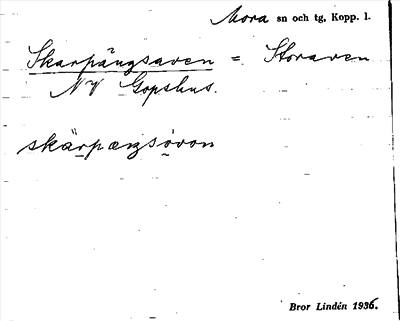 Mora sn och tg, Kopp. l.
Skarpängsaven = Storaven
NV Gopshus.
skärpæŋsovon
Bror Lindén 1936.